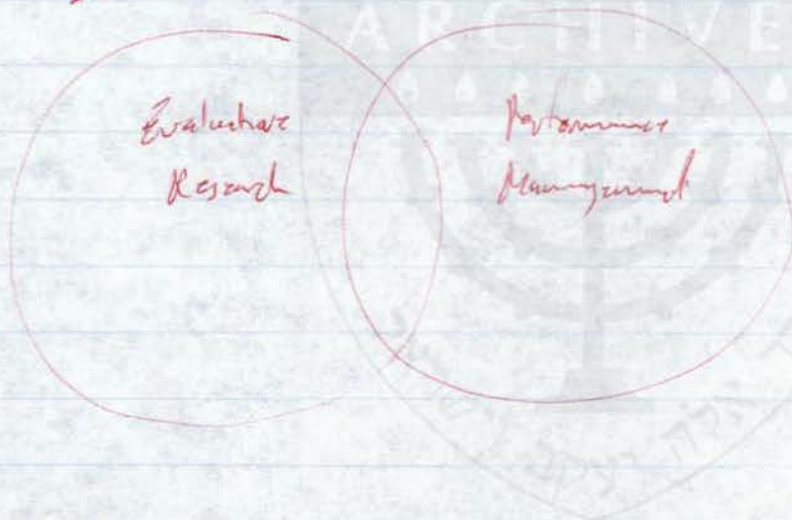 ARCHIVE
Evaluative
Research
Performance
Management